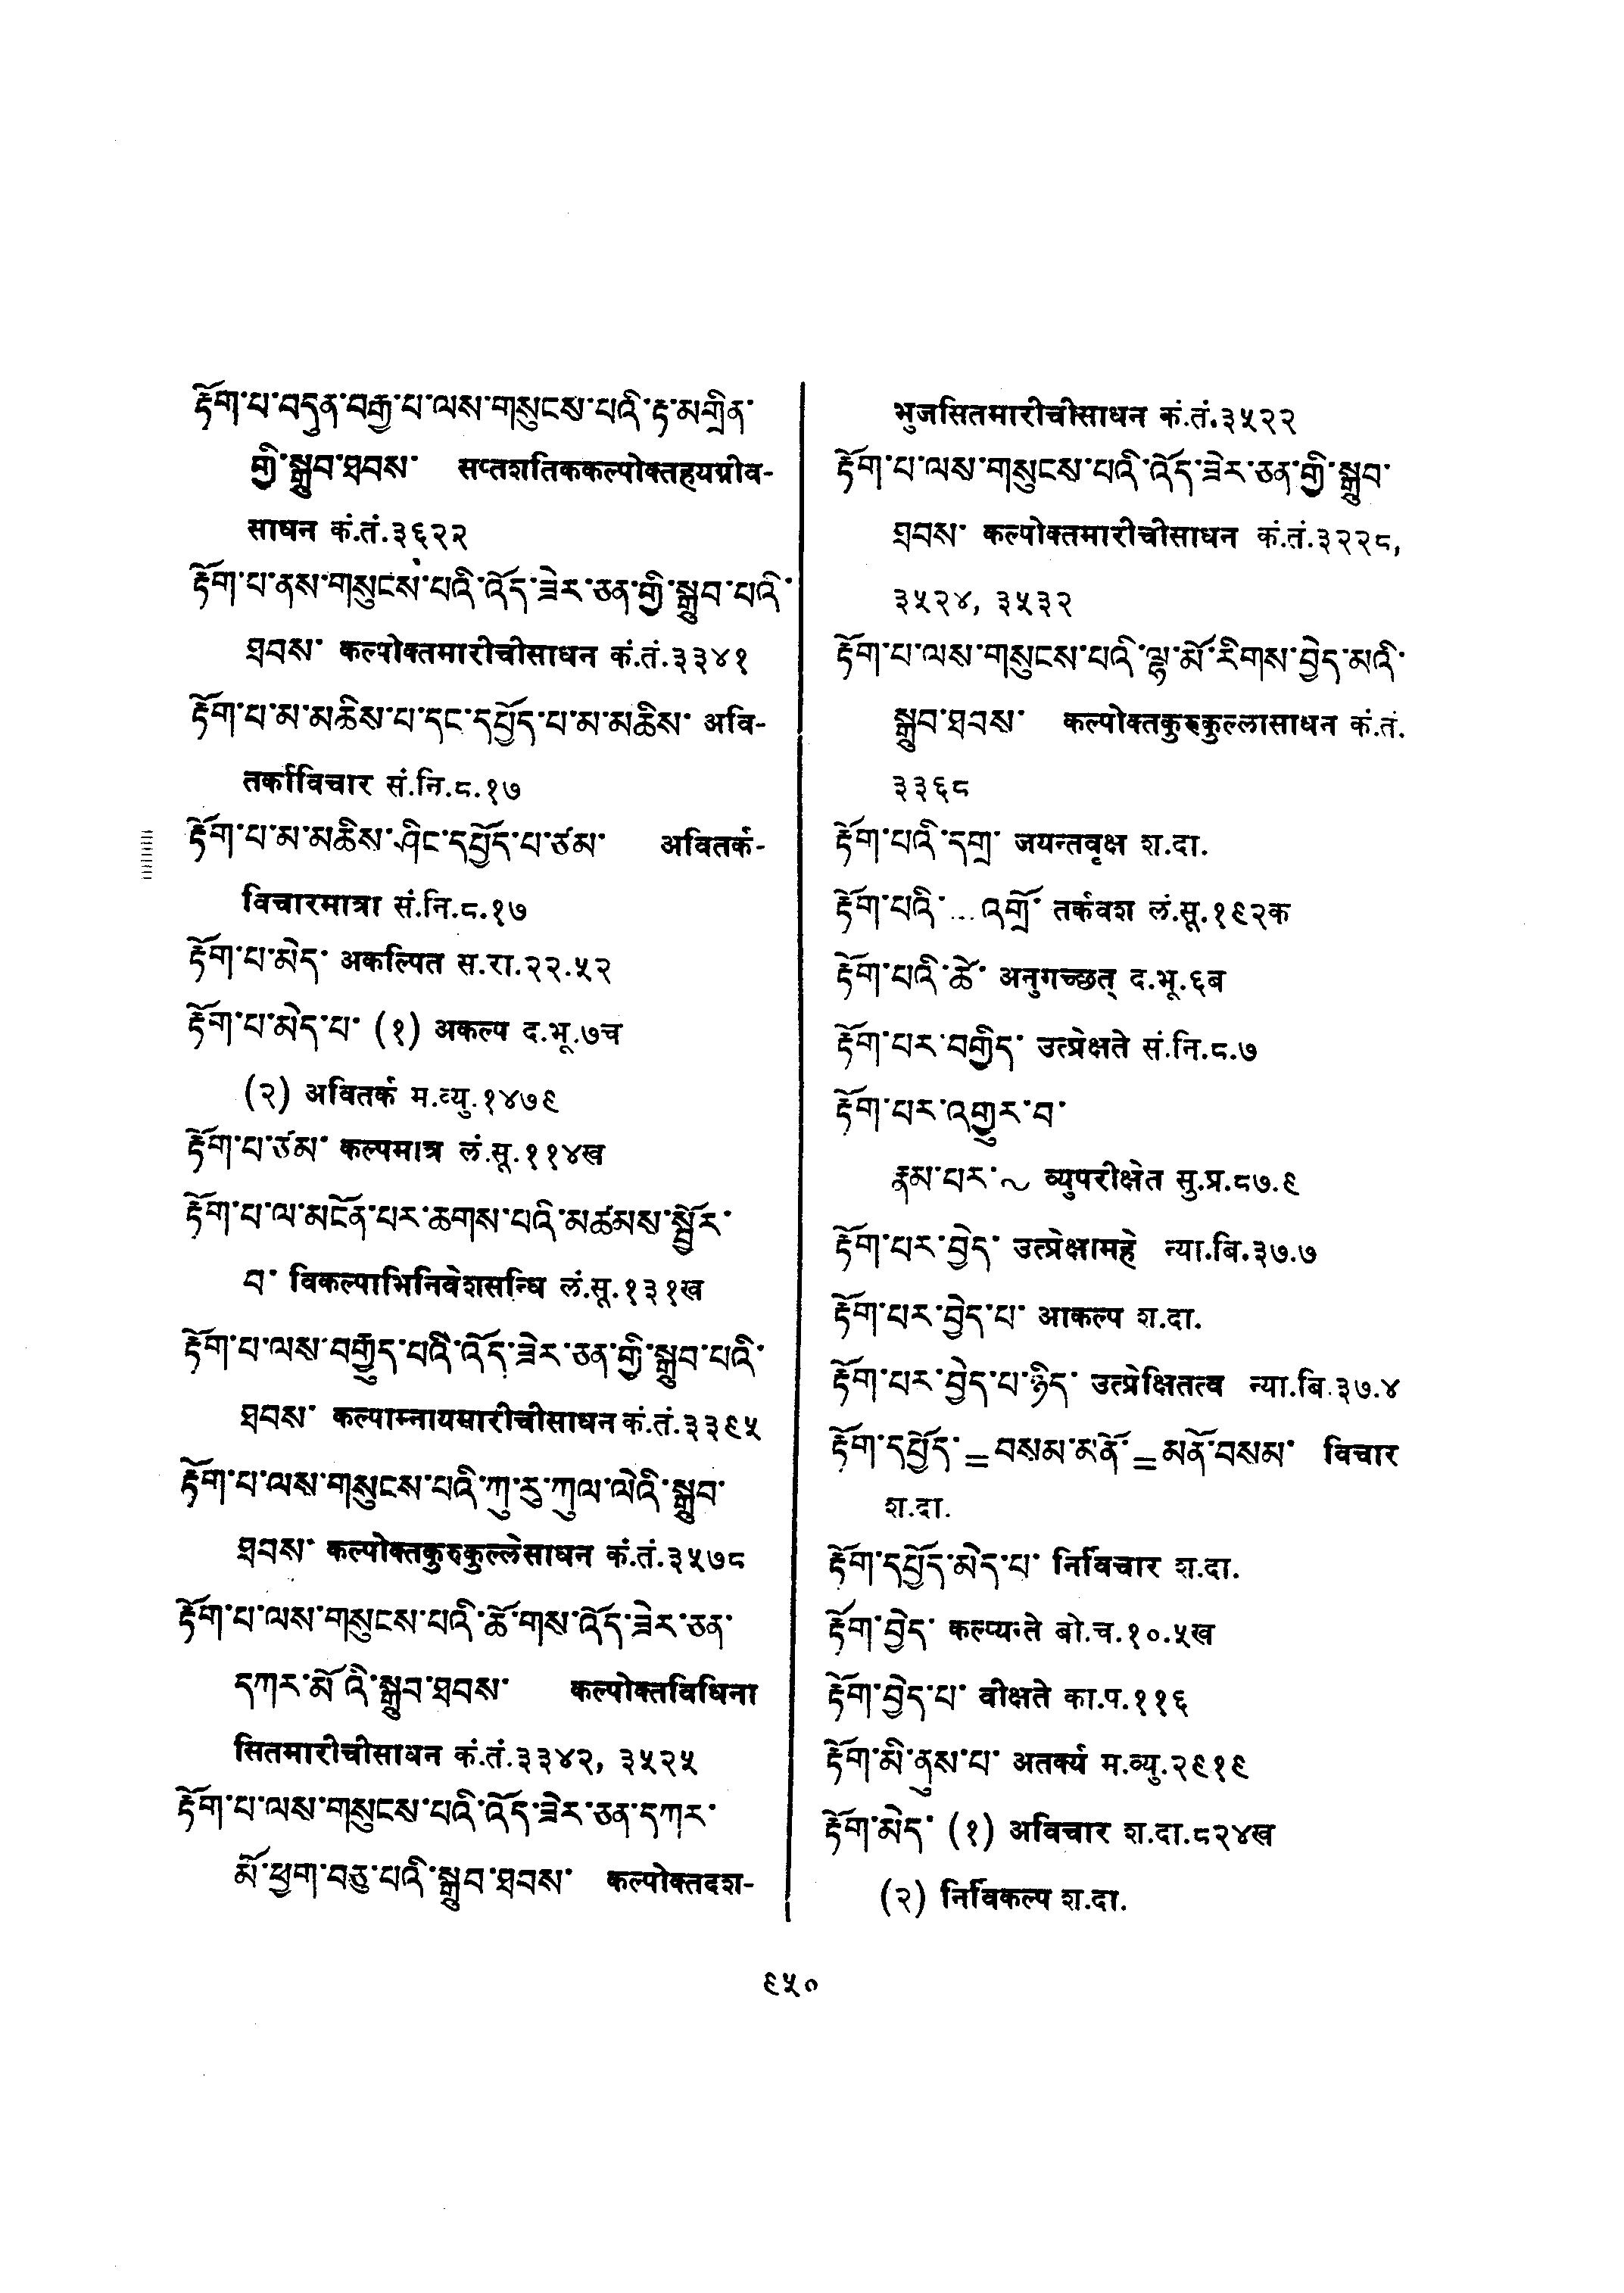 རྟོག་པ་བདུན་བརྒྱ་པ་ལས་གསུངས་པའི་རྟ་མགྲིན་
གྱི་སྒྲུབ་ཐབས་ सप्तशतिककल्पोक्तहयग्रीव-
साधन कं.तं.३६२२
རྟོག་པ་ནས་གསུངས་པའི་འོད་ཟེར་ཅན་གྱི་སྒྲུབ་པའི་
ཐབས་ कल्पोक्तमारीचीसाधन कं.तं.३३४१
རྟོག་པ་མ་མཆིས་པ་དང་དཔྱོད་པ་མ་མཆིས་ अवि-
तर्काविचार सं.नि.८.१७
རྟོག་པ་མ་མཆིས་ཤིང་དཔྱོད་པ་ཙམ་ अवितर्क-
विचारमात्रा सं.नि.८.१७
རྟོག་པ་མེད་ अकल्पित स.रा.२२.५२
རྟོག་པ་མེད་པ་ (१) अकल्प द.भू.७च
(२) अवितर्क म.व्यु.१४७९
རྟོག་པ་ཙམ་ कल्पमात्र लं.सू.११४ख
རྟོག་པ་ལ་མངོན་པར་ཆགས་པའི་མཚམས་སྦྱོར་
བ་ विकल्पाभिनिवेशसन्धि लं.सू.१३१ख
རྟོག་པ་ལས་བརྒྱུད་པའི་འོད་ཟེར་ཅན་གྱི་སྒྲུབ་པའི་
ཐབས་ कल्पाम्नायमारीचीसाधन कं.तं.३३९५
རྟོག་པ་ལས་གསུངས་པའི་ཀུ་རུ་ཀུལ་ལེའི་སྒྲུབ་
ཐབས་ कल्पोक्तकुरुकुल्लेसाधन कं.तं.३५७८
རྟོག་པ་ལས་གསུངས་པའི་ཆོ་གས་འོད་ཟེར་ཅན་
དཀར་མོ་འི་སྒྲུབ་ཐབས་ कल्पोक्तविधिना
सितमारीचीसाधन कं.तं.३३४२, ३५२५
རྟོག་པ་ལས་གསུངས་པའི་འོད་ཟེར་ཅན་དཀར་
མོ་ཕྱག་བཅུ་པའི་སྒྲུབ་ཐབས་ कल्पोक्तदश-
भुजसितमारीचीसाधन कं.तं.३५२२
རྟོག་པ་ལས་གསུངས་པའི་འོད་ཟེར་ཅན་གྱི་སྒྲུབ་
ཐབས་ कल्पोक्तमारीचीसाधन कं.तं.३२२८,
३५२४, ३५३२
རྟོག་པ་ལས་གསུངས་པའི་ལྷ་མོ་རིགས་བྱེད་མའི་
སྒྲུབ་ཐབས་ कल्पोक्तकुरुकुल्लासाधन कं.तं.
३३६८
རྟོག་པའི་དགྲ་ जयन्तवृक्ष श.दा.
རྟོག་པའི་...འགྲོ་ तर्कवश लं.सू.१९२क
རྟོག་པའི་ཚེ་ अनुगच्छत् द.भू.६ब
རྟོག་པར་བགྱིད་ उत्प्रेक्षते सं.नि.८.७
རྟོག་པར་འགྱུར་བ་
རྣམ་པར་~ व्युपरीक्षेत सु.प्र.८७.९
རྟོག་པར་བྱེད་ उत्प्रेक्षामहे न्या.बि.३७.७
རྟོག་པར་བྱེད་པ་ आकल्प श.दा.
རྟོག་པར་བྱེད་པ་ཉིད་ उत्प्रेक्षितत्व न्या.बि.३७.४
རྟོག་དཔྱོད་=བསམ་མནོ་=མནོ་བསམ་ विचार
श.दा.
རྟོག་དཔྱོད་མེད་པ་ निर्विचार श.दा.
རྟོག་བྱེད་ कल्प्यन्ते बो.च.१०.५ख
རྟོག་བྱེད་པ་ वीक्षते का.प.११६
རྟོག་མི་ནུས་པ་ अतर्क्य म.व्यु.२९१९
རྟོག་མེད་ (१) अविचार श.दा.८२४ख
(२) निर्विकल्प श.दा.
९५०